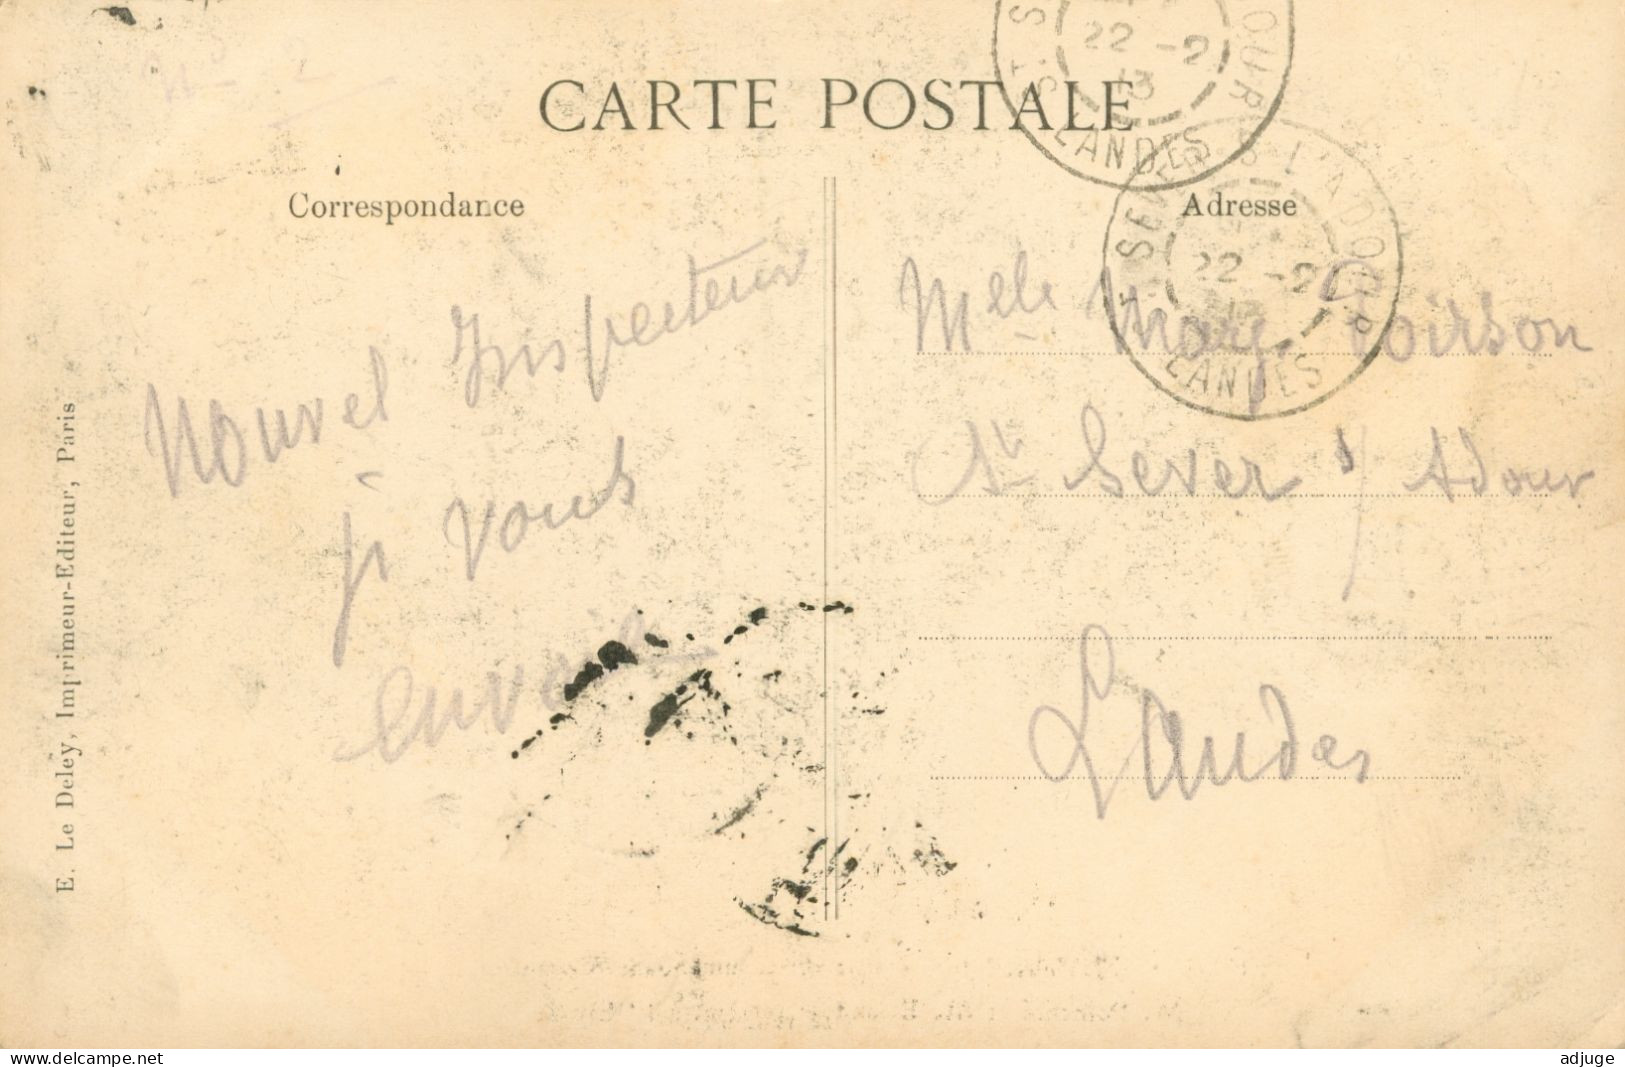 Nº 2
CARTE POSTALE
Correspondance
Adresse
Nouvel Inspecteur
je vous
envoie
Melle Marg. Poirson
St Sever s/ Adour
Landes
E. Le Deley, Imprimeur-Editeur, Paris
22 -2
13
LANDES
ST SEVER S L'ADOUR
22 -2
13
LANDES
www.delcampe.net
adjuge